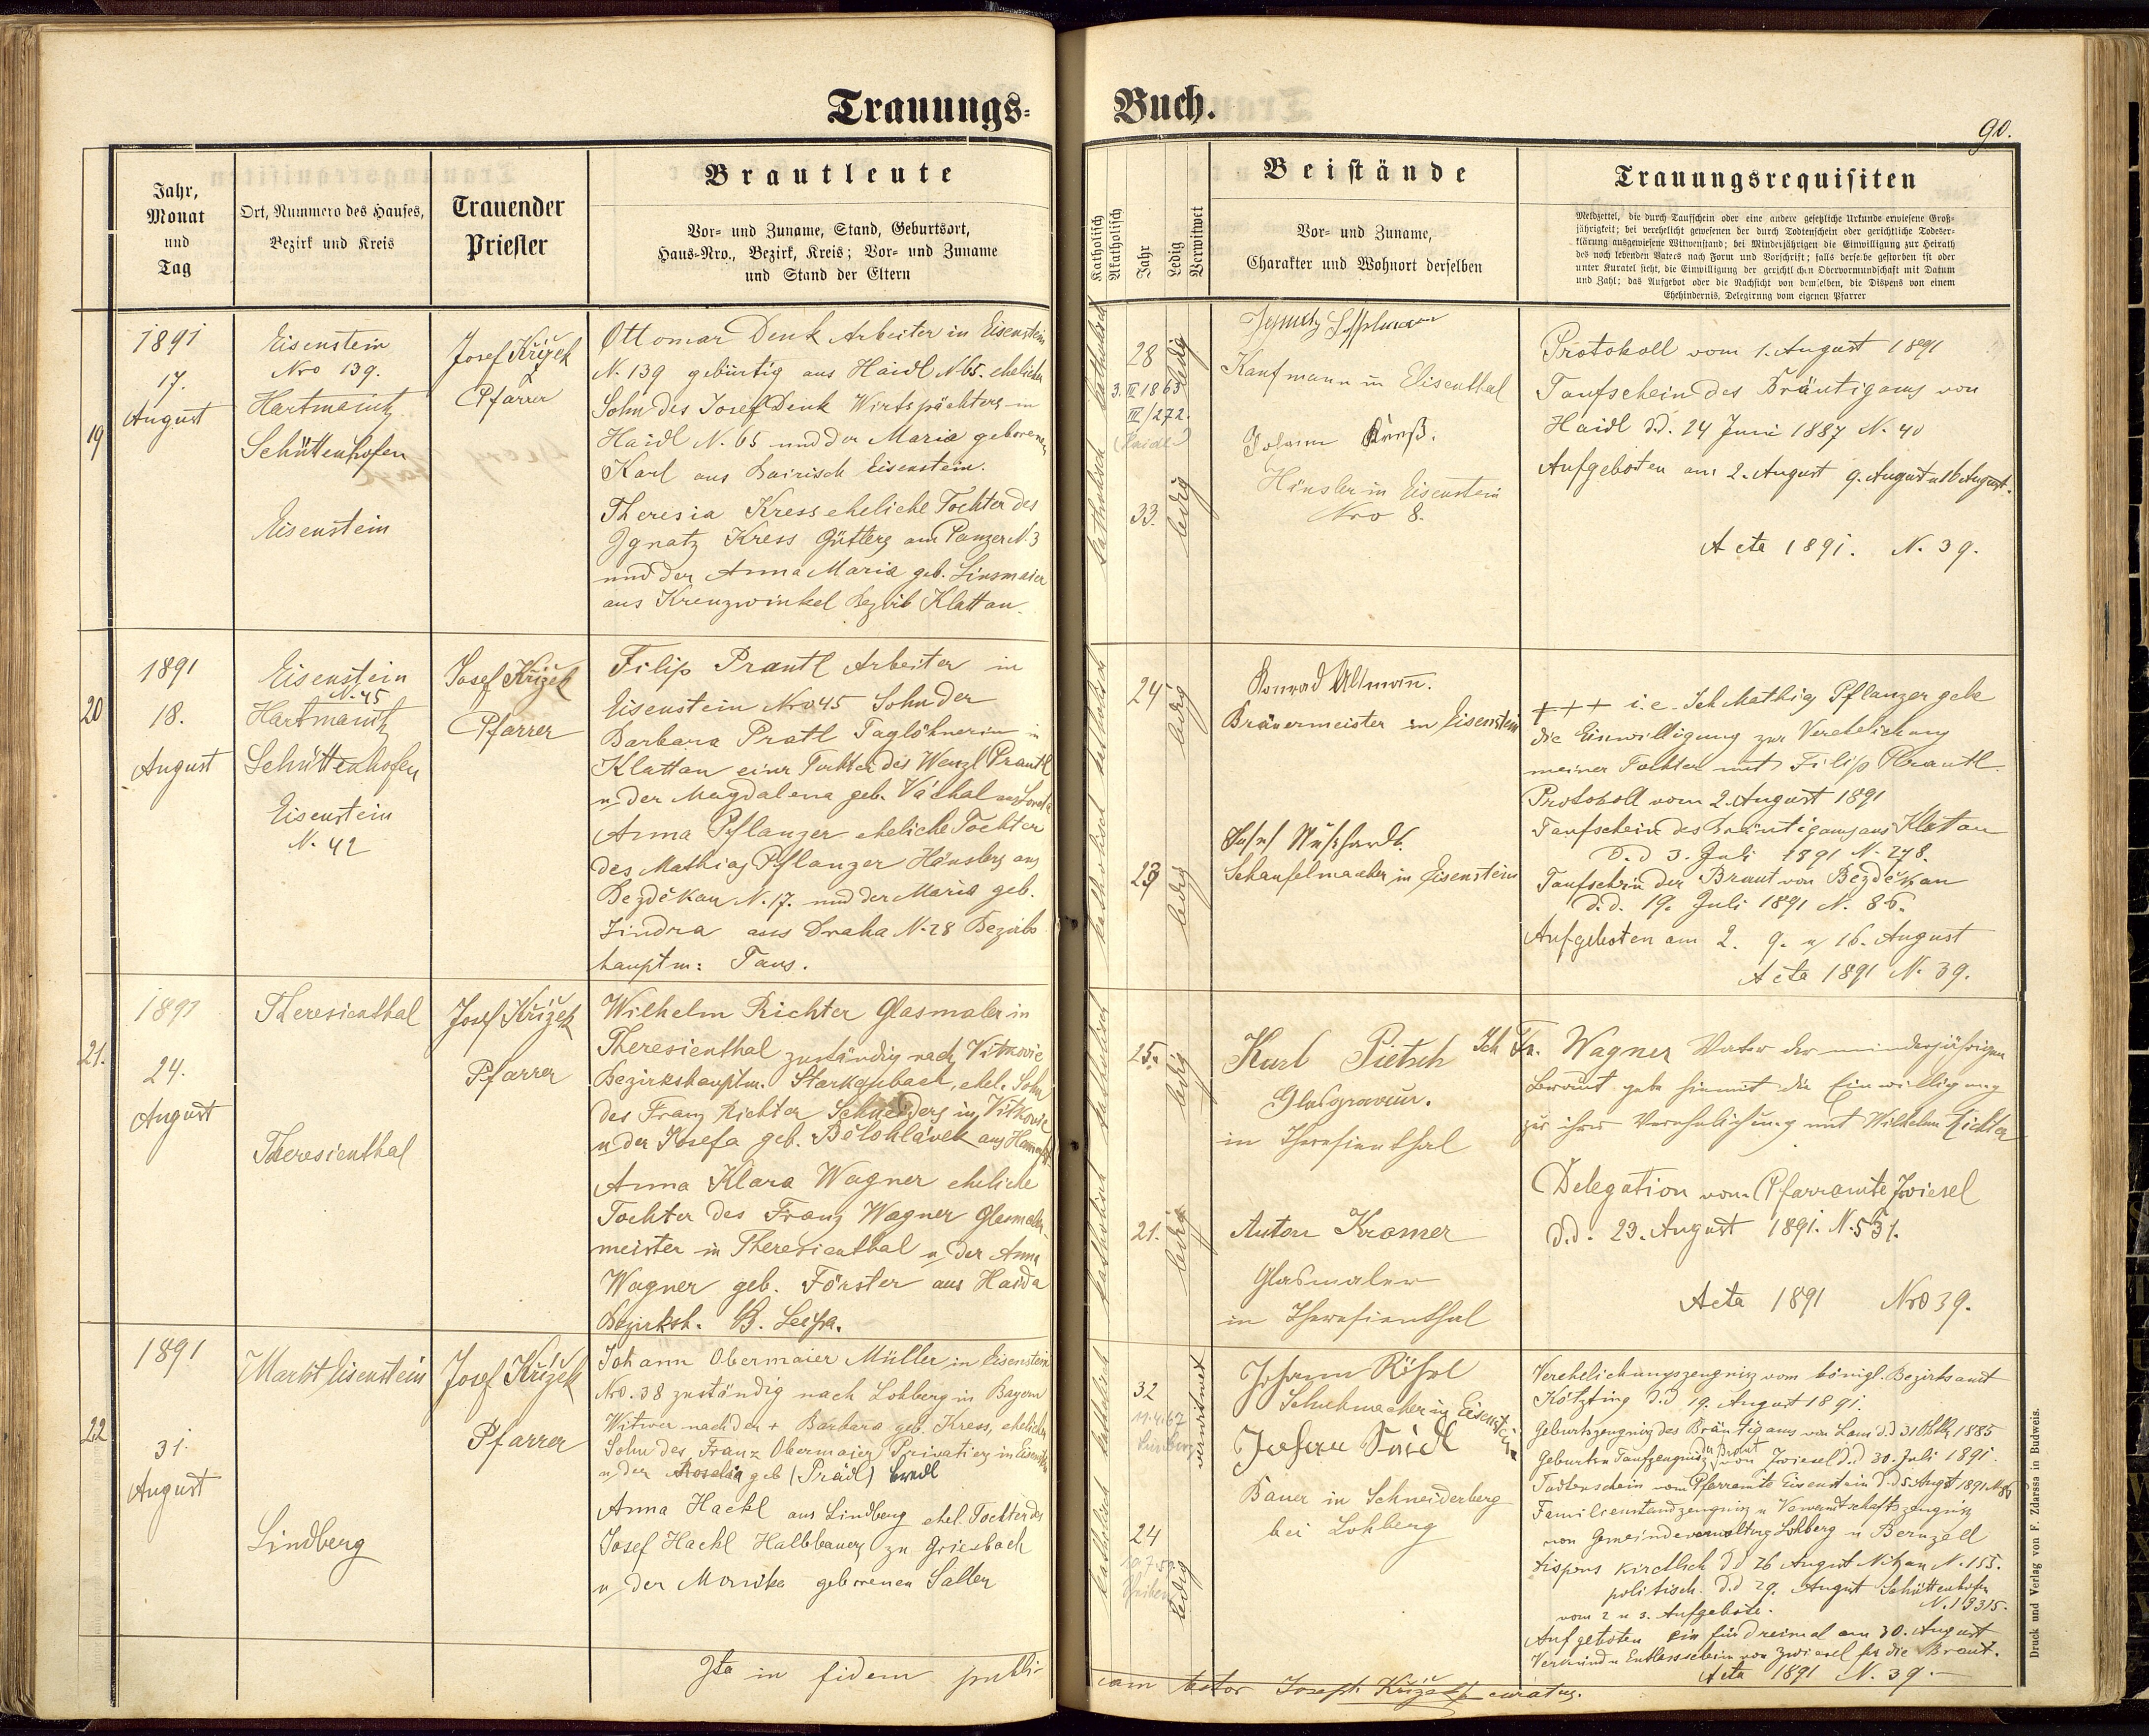 Trauungs-
Buch.
90.
Jahr,
Monat
und
Tag
Ort, Nummero des Hauses,
Bezirk und Kreis
Trauender
Priester
Brautleute
Vor- und Zuname, Stand, Geburtsort,
Haus-Nro., Bezirk, Kreis; Vor- und Zuname
und Stand der Eltern
Katholisch
Akatholisch
Jahr
Ledig
Verwitwet
Beistände
Vor- und Zuname,
Charakter und Wohnort derselben
Trauungsrequisiten
Meldzettel, die durch Taufschein oder eine andere gesetzliche Urkunde erwiesene Groß-
jährigkeit; bei verehelicht gewesenen der durch Todtenschein oder gerichtliche Todeser-
klärung ausgewiesene Witwenstand; bei Minderjährigen die Einwilligung zur Heirath
des noch lebenden Vaters nach Form und Vorschrift; falls derselbe gestorben ist oder
unter Kuratel steht, die Einwilligung der gerichtlichen Obervormundschaft mit Datum
und Zahl; das Aufgebot oder die Nachsicht von demselben, die Dispens von einem
Ehehindernis. Delegirung vom eigenen Pfarrer
19
1891
17.
August
Eisenstein
Nro 139.
Hartmanitz
Schüttenhofen
Eisenstein
Josef Křížek
Pfarrer
Ottomar Denk Arbeiter in Eisenstein
N. 139 gebürtig aus Haidl N 65. ehelicher
Sohn des Josef Denk Wirtspächters in
Haidl N. 65 und der Maria geborenen
Karl aus Bairisch Eisenstein.
Theresia Kress eheliche Tochter des
Ignatz Kress Gütlers am Panzer N. 3
und der Anna Maria geb. Linsmaier
aus Kreuzwinkel Bezirk Klattau.
katholisch
28
ledig
3. II 1863
III/272.
(Haidl)
katholisch
33.
ledig
Kaufmann in Eisenthal
Johann Kreß.
Häusler in Eisenstein
Nro 8.
Protokoll vom 1. August 1891
Taufschein des Bräutigams von
Haidl d.d. 24 Juni 1887 N. 40
Aufgeboten am 2. August 9. August u 16 August.
Acta 1891. N. 39.
20
1891
18.
August
Eisenstein
N. 45
Hartmanitz
Schüttenhofen
Eisenstein
N. 42
Josef Křížek
Pfarrer
Filip Prantl Arbeiter in
Eisenstein Nro 45 Sohn der
Barbara Pratl Taglöhnerin in
Klattau einer Tochter des Wenzl Prantl
u der Magdalena geb. Váchal aus
Anna Pflanzer eheliche Tochter
des Mathias Pflanzer Häuslers aus
Bezděkau N. 17. und der Maria geb.
Jindra aus Draha N. 28 Bezirks
hauptm: Taus.
katholisch
24
ledig
katholisch
23
ledig
Konrad Altmann.
Bräuermeister in Eisenstein
Schaufelmacher in Eisenstein
+++ i.e. Ich Mathias Pflanzer gebe
die Einwilligung zur Verehelichung
meiner Tochter mit Filip Prantl.
Protokoll vom 2. August 1891
Taufschein des Bräutigams aus Klattau
d.d 3. Juli 1891 N. 278.
Taufschein der Braut von Bezděkau
d.d. 19. Juli 1891 N. 86.
Aufgeboten am 2. 9. u 16. August
Acta 1891 N. 39.
21.
1891
24.
August
Theresienthal
Theresienthal
Josef Křížek
Pfarrer
Wilhelm Richter Glasmaler in
Theresienthal zuständig nach Vitkovic
Bezirkshauptm. Starkenbach, ehel. Sohn
des Franz Richter Schneiders in Vitkovic
u der Josefa geb. Bělohlávek aus
Anna Klara Wagner eheliche
Tochter des Franz Wagner Glasmaler-
meister in Theresienthal u der Anna
Wagner geb. Förster aus Haida
Bezirksh. B. Leipa.
katholisch
25.
ledig
katholisch
21.
ledig
Karl Pietsch
Glasgraveur.
in Theresienthal
Anton Kramer
Glasmaler
in Theresienthal
Ich Fr. Wagner Vater der minderjährigen
Braut gebe hiemit die Einwilligung
zu ihrer Verehelichung mit Wilhelm Richter
Delegation vom Pfarramte Zwiesel
d.d. 23. August 1891. N. 551.
Acta 1891 Nro 39.
22
1891
31.
August
Markt Eisenstein
Lindberg
Josef Křížek
Pfarrer
Johann Obermaier Müller in Eisenstein
Nro. 38 zuständig nach Lohberg in Bayern
Witwer nach der + Barbara geb. Kress, ehelicher
Sohn des Franz Obermaier Privatiers in Eisenstein
u der Rosalia geb (Prädl) Bredl
Anna Hackl aus Lindberg ehel. Tochter des
Josef Hackl Halbbauers zu Griesbach
u der Monika geborenen Saller
katholisch
32
verwitwet
katholisch
24
ledig
Johann
Schuhmacher in Eisenstein
Johann
Bauer in Schneiderberg
bei Lohberg
Verehelichungszeugniss vom königl. Bezirksamt
Kötzting d.d 19. August 1891.
Geburtszeugniss des Bräutigams von Lam d.d 31 Okt. 1885
Geburts u Taufzeugniss der Braut von Zwiesel d.d 30. Juli 1891.
Todtenschein vom Pfarramte Eisenstein d.d 5 August 1891 N 86
Familienstandzeugniss u Verwandtschaftszeugniss
von Gemeindeverwaltung Lohberg u
Dispens kirchlich d.d 26 August N. 155.
politisch d.d 29. August Schüttenhofen
N. 19315.
vom 2 u 3. Aufgebote.
Aufgeboten ein für dreimal am 30. August
Verkünd u Entlassschein von Zwiesel für die Braut.
Acta 1891 N. 39.
Ita in fidem publi-
cam testor Joseph Křížek curatus.
Druck und Verlag von F. Zdarssa in Budweis.